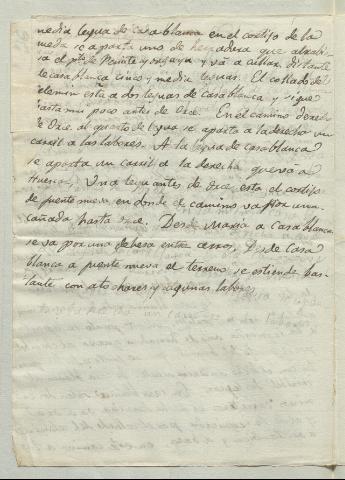 media legua de casablanca en el cortijo de la
se aparta uno de herradura que atravie
sa el pto de y va a cullar distante
de casa blanca cinco y media leguas. El collado del
esta a dos leguas de Casablanca y sigue
poco antes de Orce. En el camino derecho
de Orce al quarto de legua se aparta a la derecha un
carril a las labores. A la legua de casablanca
se aparta un carril a la derecha que va a
Huescar. Una legua antes de Orce esta el cortijo
de puente nueva en donde el camino va por una
cañada hasta Orce. Desde Maria a Casa blanca
se va por una dehesa entre cerros. Desde Casa
blanca a puente nueva el terreno se estiende bas-
tante con atochares y algunas labores